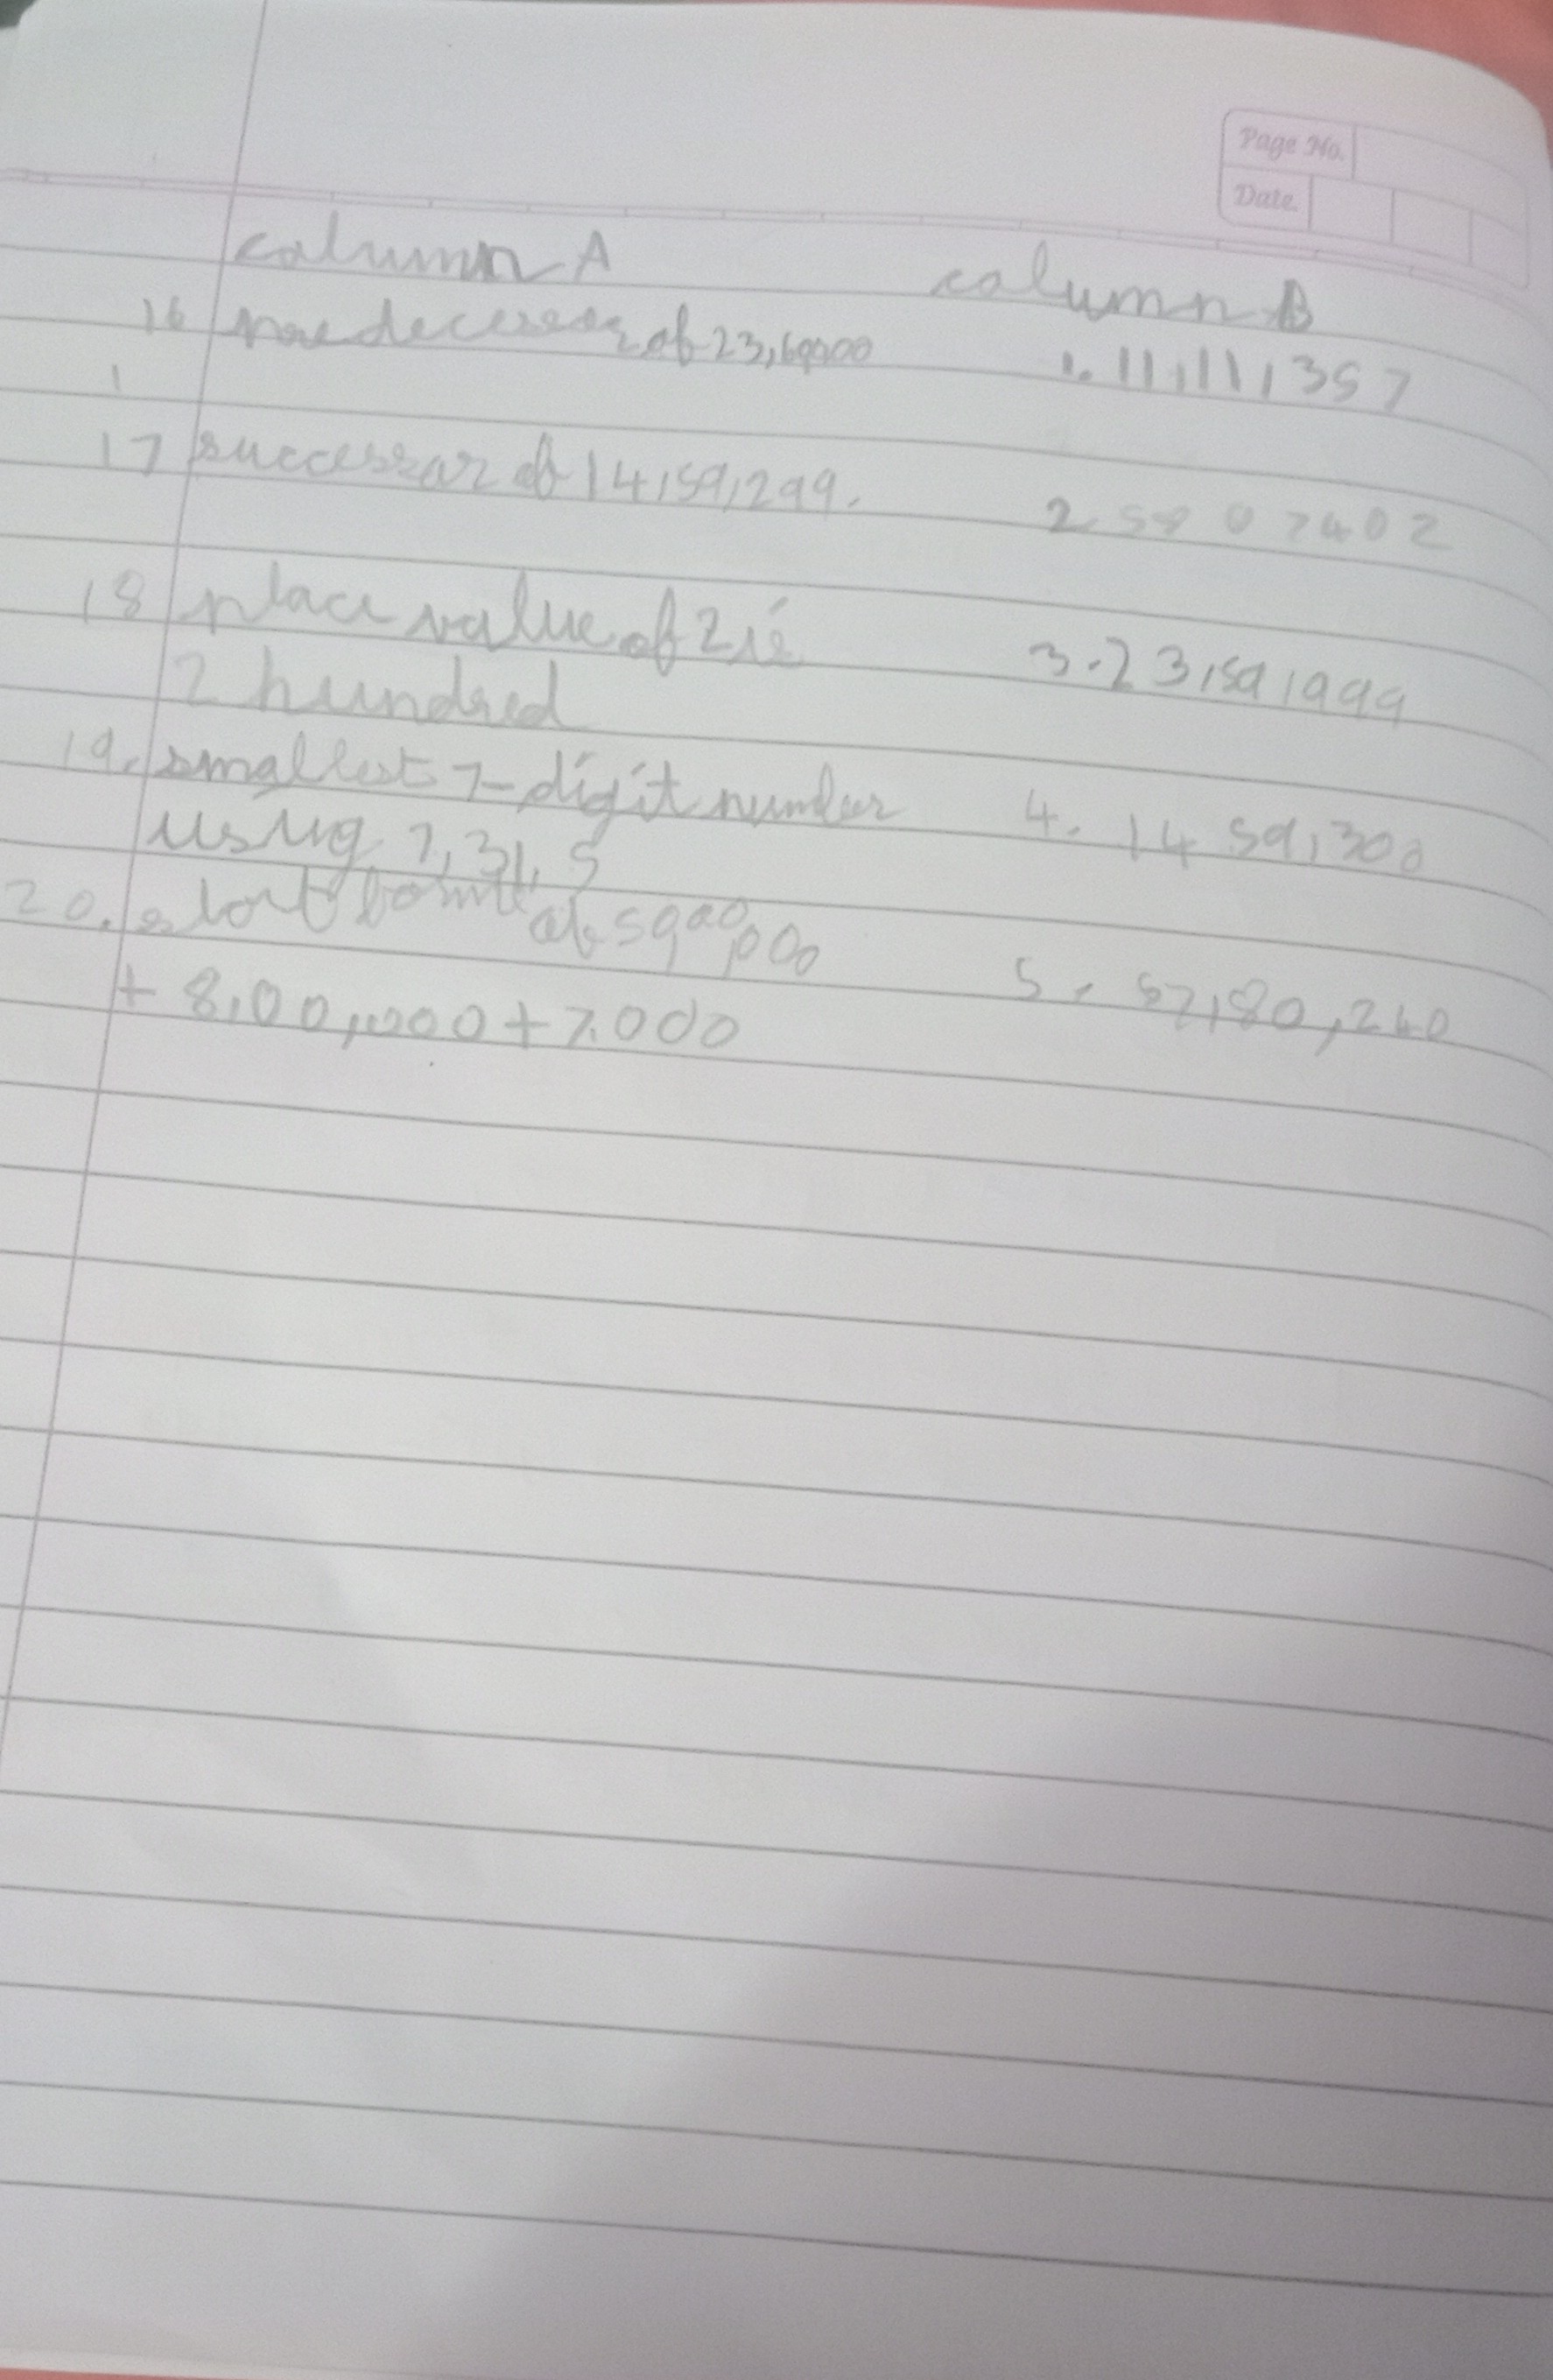 Page No.
Date.
column A column B
16 of 23,60,000 1. 11,11,357
17 successor of 14,59,299. 2. 58 0 7402
18 place value of 2 is 3. 23,59,999
2 hundred
19. smallest 7-digit number 4. 14 59,300
using 7,3,1,5
20. of 5900,000 5. 57,80,240
+ 8,00,000 + 7000